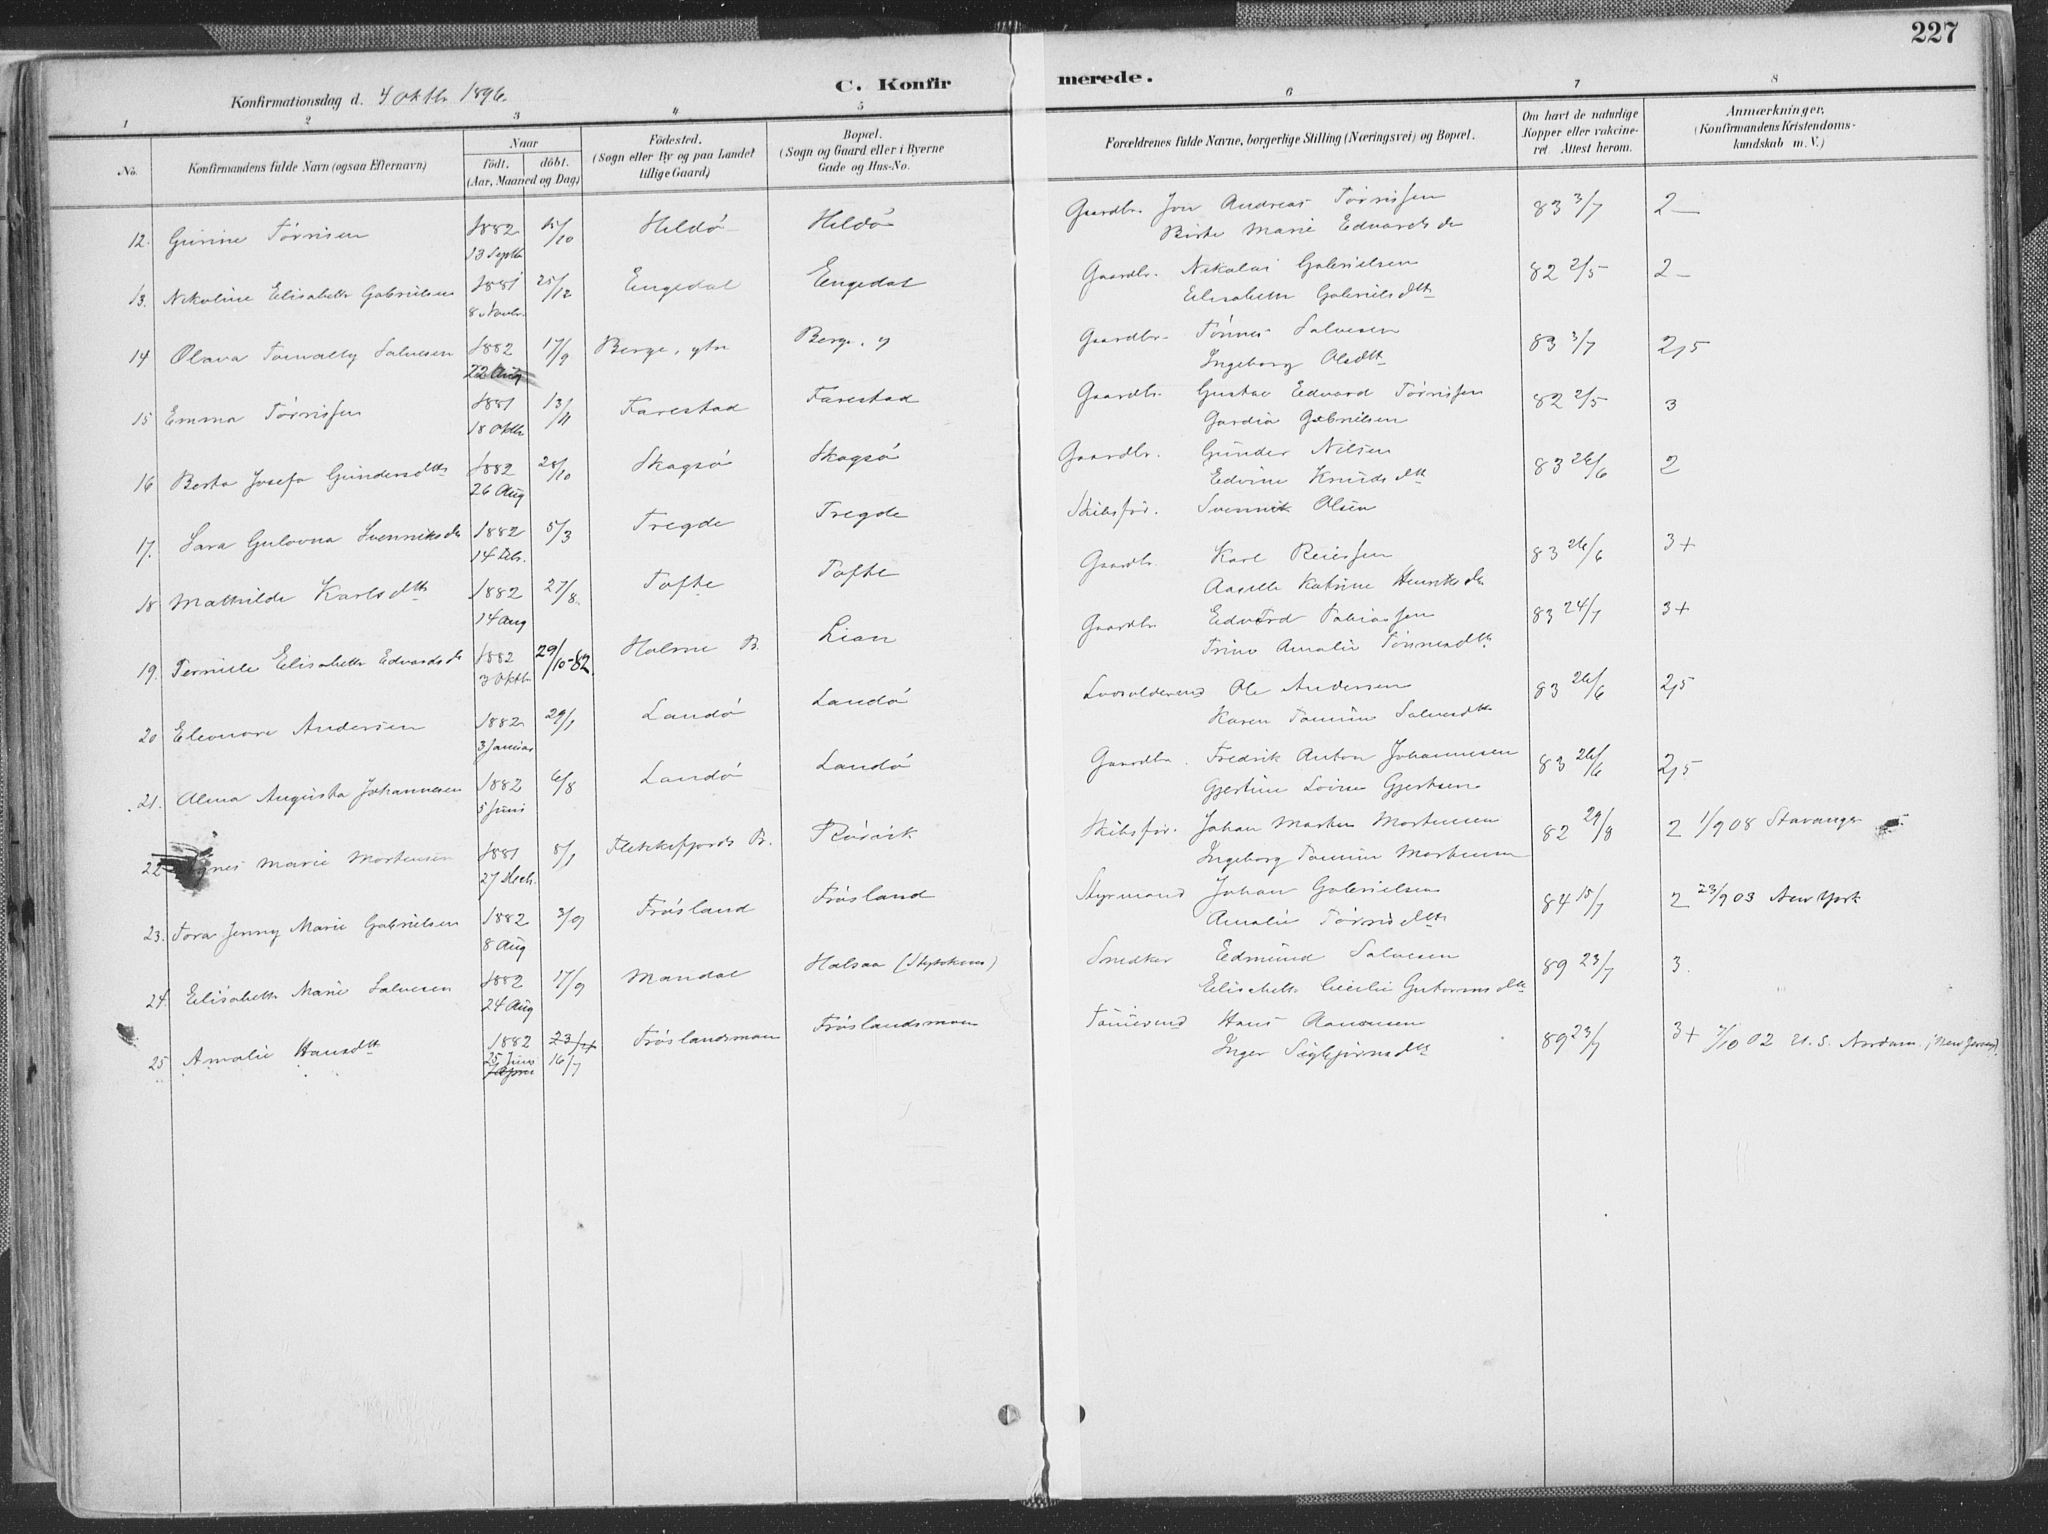 227
Konfirmationsdag d. 4 Oktbr 1896.
C. Konfirmerede.
1 2 3 4 5 6 7 8
No.
Konfirmandens fulde Navn (ogsaa Efternavn)
Naar
födt. döbt.
(Aar, Maaned og Dag)
Födested.
(Sogn eller By og paa Landet
tillige Gaard)
Bopæl.
(Sogn og Gaard eller i Byerne
Gade og Hus-No.
Forældrenes fulde Navne, borgerlige Stilling (Næringsvei) og Bopæl.
Om havt de naturlige
Kopper eller vakcine-
ret. Attest herom.
Anmærkninger,
(Konfirmandens Kristendoms-
kundskab m. V.)
12. Gunine Tørrisen 1882 15/10 Hildø Hildø Gaardbr. Jon Andreas Tørrisen 83 3/7 2
13 Septbr Birte Marie Edvardsdr
13. Nikoline Elisabeth Gabrielsen 1881 25/12 Engedal Engedal Gaardbr. Nikolai Gabrielsen 82 2/5 2
8 Novbr. Elisabeth Gabrielsdtt
14 Olava Salvesen 1882 17/9 Berge, ytre Berge, y Gaardbr. Tønnes Salvesen 83 3/7 2,5
22 Aug Ingeborg Olsdtt
15 Emma Tørrisen 1881 13/11 Farestad Farestad Gaardbr. Gustav Edvard Tørrisen 82 2/5 3
18 Oktbr Gabrielsen
16 Berta Josefa Gundersdtt 1882 28/10 Skogsø Skogsø Gaardbr. Gunder Nilsen 83 26/6 2
26 Aug Edvine Knudsdtt
17. Sara Gulovna Svenniksdr 1882 5/3 Tregde Tregde Skibsfør. Svennik Olsen
14 Febr.
18 Mathilde Karlsdtt 1882 27/8. Tofte Tofte Gaardbr. Karl Reiersen 83 26/6 3+
14 Aug Aaselle Katrine Henriksdr
19. Pernille Elisabeth Edvardsdr 1882 29/10-82. Holme B. Lian Gaardbr Edvard Tobiassen 83 24/7 3+
3 Oktbr Trine Amalie Tønnesdtt
20 Eleonore Andersen 1882 29/1 Landø Landø Ole Andersen 83 26/6 2,5
3 Januar Karen Tomine Salvesdtt
21. Alma Augusta Johannesen 1882 6/8 Landø Landø Gaardbr. Fredrik Anton Johannesen 83 26/6 2,5
5 Juni Gjertine Lovise Gjertsen
22 Agnes Marie Mortensen 1881 8/1 Flekkefjords B. Rørvik Skibsfør. Johan Martin Mortensen 82 29/8 2 1/9 08 Stavanger
27 Decb. Ingeborg Tomine Mortensen
23. Tora Jenny Marie Gabrielsen 1882 3/9 Frøsland Frøsland Styrmand Johan Gabrielsen 84 15/7 2 23/9 03 New York
8 Aug Amalie Tørrisdtt
24. Elisabeth Marie Salvesen 1882 17/9 Mandal Halsaa Snedker Edmund Salvesen 89 23/7 3.
24 Aug Elisabeth Cecilie Gutormsdtt
25 Amalie Hansdtt 1882 23/4 Frøslandsmoen Frøslandsmoen Tømmermd Hans Aanonsen 89 23/7 3+ 7/10 02 U.S. Nordam. (New Jersey).
25 Juni 16/7 Inger Sigbjørnsdtt
7 April